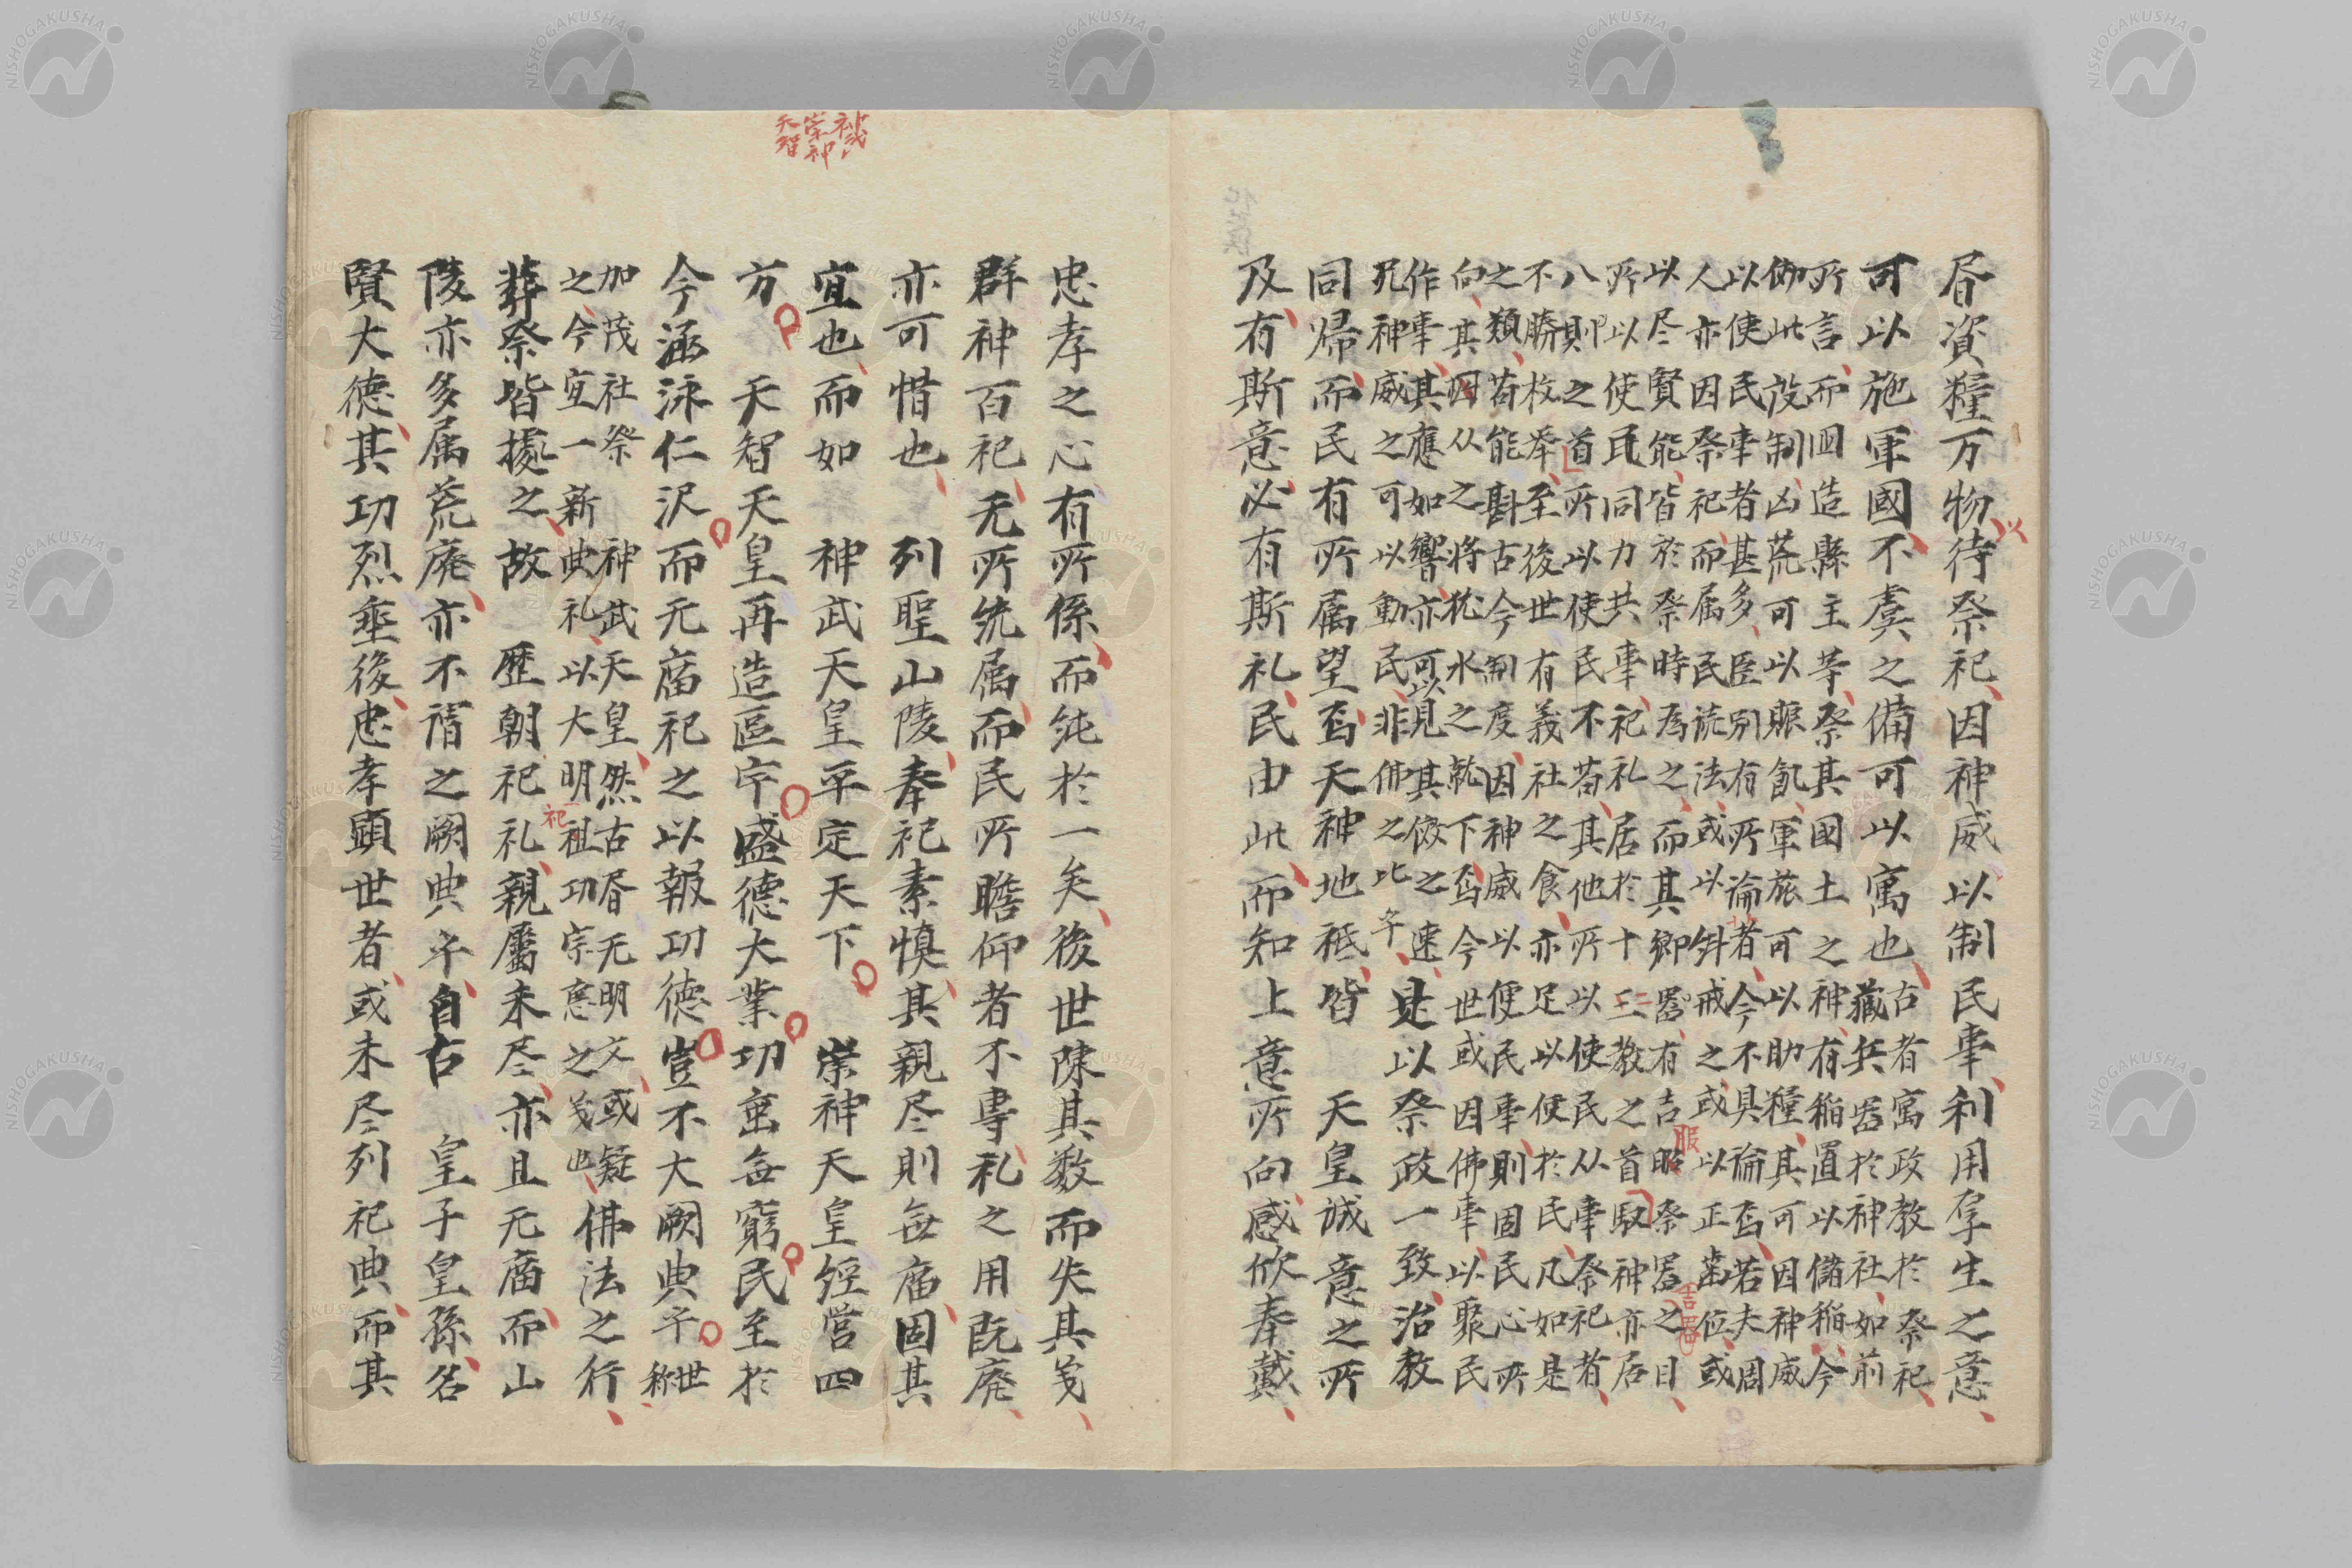 昏資糧万物待祭祀因神威以制民事利用厚生之意
可以施軍國不虞之備可以寓也古者寓政教於祭祀
藏兵器於神社如前
所言而國造縣主等祭其國土之神有稲置以儲稲今
倣此設制凶荒可以賑飢軍旅可以助糧其可因神威
以使民事者甚多臣別有所論者今不具論否若夫周
人亦因祭祀而属民読法或以糾戒之或以正歯位或
以尽賢能皆於祭時為之而其郷器有吉服祭器之目
所以使民同力共事祀礼居於十二教之首馭神亦居
八則之首所以使民不苟其他所以使民从事祭祀者
不勝枚挙至後世有義社之食亦足以便於民凡如是
之類苟能斟古今制度因神威以便民事則固民心所
向其因从之将犹水之就下否今世或因佛事以聚民
作事其應如響亦可以見其俲之速
死神威之可以動民非佛之比乎
是以祭政一致治教
同帰而民有所属望否天神地祇皆 天皇誠意之所
及有斯意必有斯礼民由此而知上意所向感欣奉戴
神武
崇神
天智
忠孝之心有所係而純於一矣後世陳其数而失其義
群神百祀无所統属而民所瞻仰者不専礼之用既廃
亦可惜也 列聖山陵奉祀素慎其親尽則毎庿固其
宜也而如 神武天皇平定天下 崇神天皇経営四
方 天智天皇再造區宇盛德大業功烝毎窮民至於
今涵泳仁沢而无庿祀之以報功徳豈不大闕典乎世称
加茂社祭 神武天皇然古昏无明文或疑
之今宜一新典礼以大明祖功宗徳之義也佛法之行
葬祭皆據之故 歴朝祀礼親屬未尽亦且无庿而山
陵亦多属荒廃亦不謂之闕典乎自古 皇子皇孫名
賢大德其功烈垂後忠孝顕世者或未尽列祀典而其